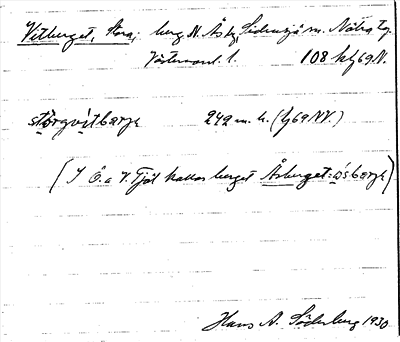 Vitberget, Stora; berg N. Åsby, Sidensjö sn. Nätra tg.
Västernorrl. l. 108 kf 69 N.
stòrgvìtbærje 242 m. h. (kf 69 NV.)
(I Ö. o. V. Fjäl kallas berget Åsberget: åsbærje)
Hans A. Söderberg 1930